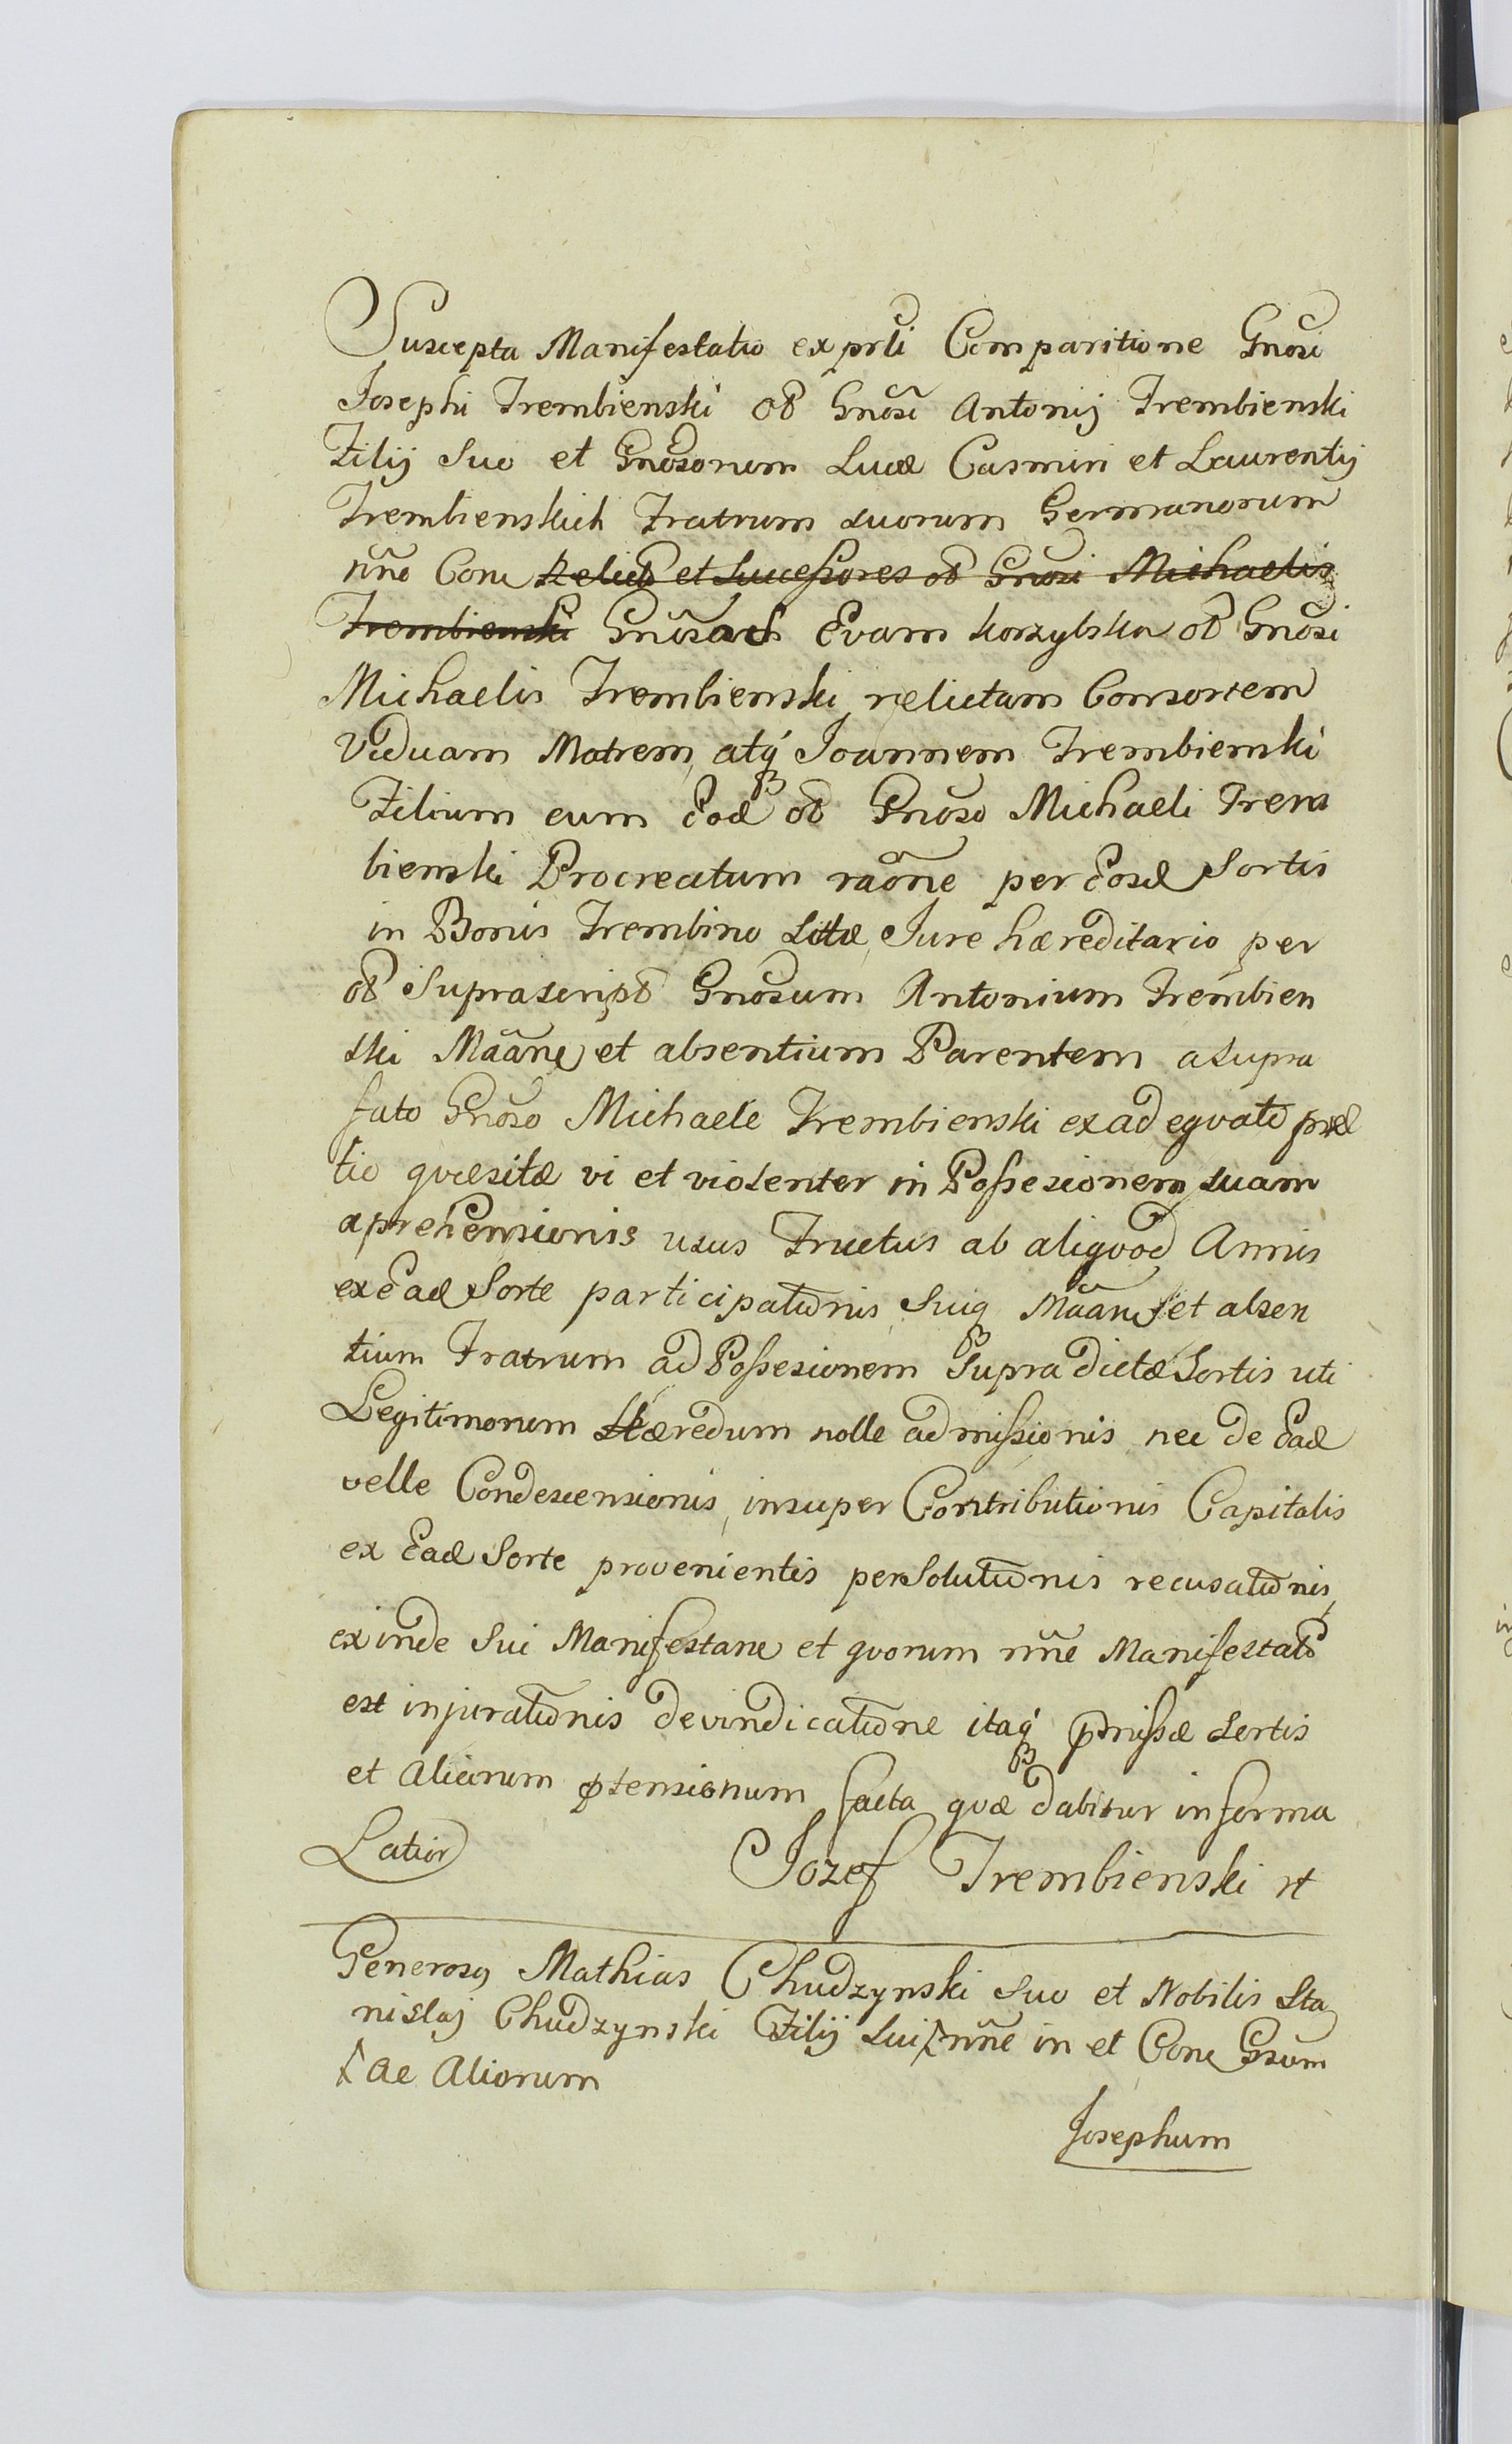 Suscepta Manifestatio ex prti Comparitione Gnosi
Josephi Trembienski oł Gnosi Antonij Trembienski
Filij Suo et Gnosorum Lucæ Casmiri et Laurentij
Trembienskich Fratrum suorum Germanorum
nñe Con Relictã et Sucessores oł Gnosi Michaelis
Trembienski Gnosã Evam korzybska oł Gnosi
Michaelis Trembienski relictam Consortem
Viduam Matrem, atq Joannem Trembienski
Filium cum Eod oł Gnoso Michaeli Trem
bienski Procreatum raõne per Eosd Sortis
in Bonis Trembino Sitæ, Jure hæreditario per
oł Suprascript Gnosum Antonium Trembien
ski Mãane et absentium Parentem a supra
fato Gnoso Michaele Trembienski ex adequato præ
tio quæsitæ vi et violenter in Possesionem suam
aprehensionis usus Fructus ab aliquod Annis
ex Ead Sorte participationis, Suiq Mãane et absen
tium Fratrum ad Possesionem Supra dictæ Sortis uti
Legitimorum Hæredum nolle admissionis nec de Ead
velle Condescensionis, insuper Contributionis Capitalis
ex Ead Sorte provenientis persolutionis recusationis,
exinde Sui Manifestane et quorum nñe Manifestatõ
est injurationis devindicatione itaq pmissæ Sortis
et Aliarum ptensionum facta quæ dabitur in forma
Latior
Jozef Trembienski
Generosq Mathias Chudzynski Suo et Nobilis Sta
nislaj Chudzynski Filij Sui nñe in et Con Gsum
Ac Aliorum
Josephum